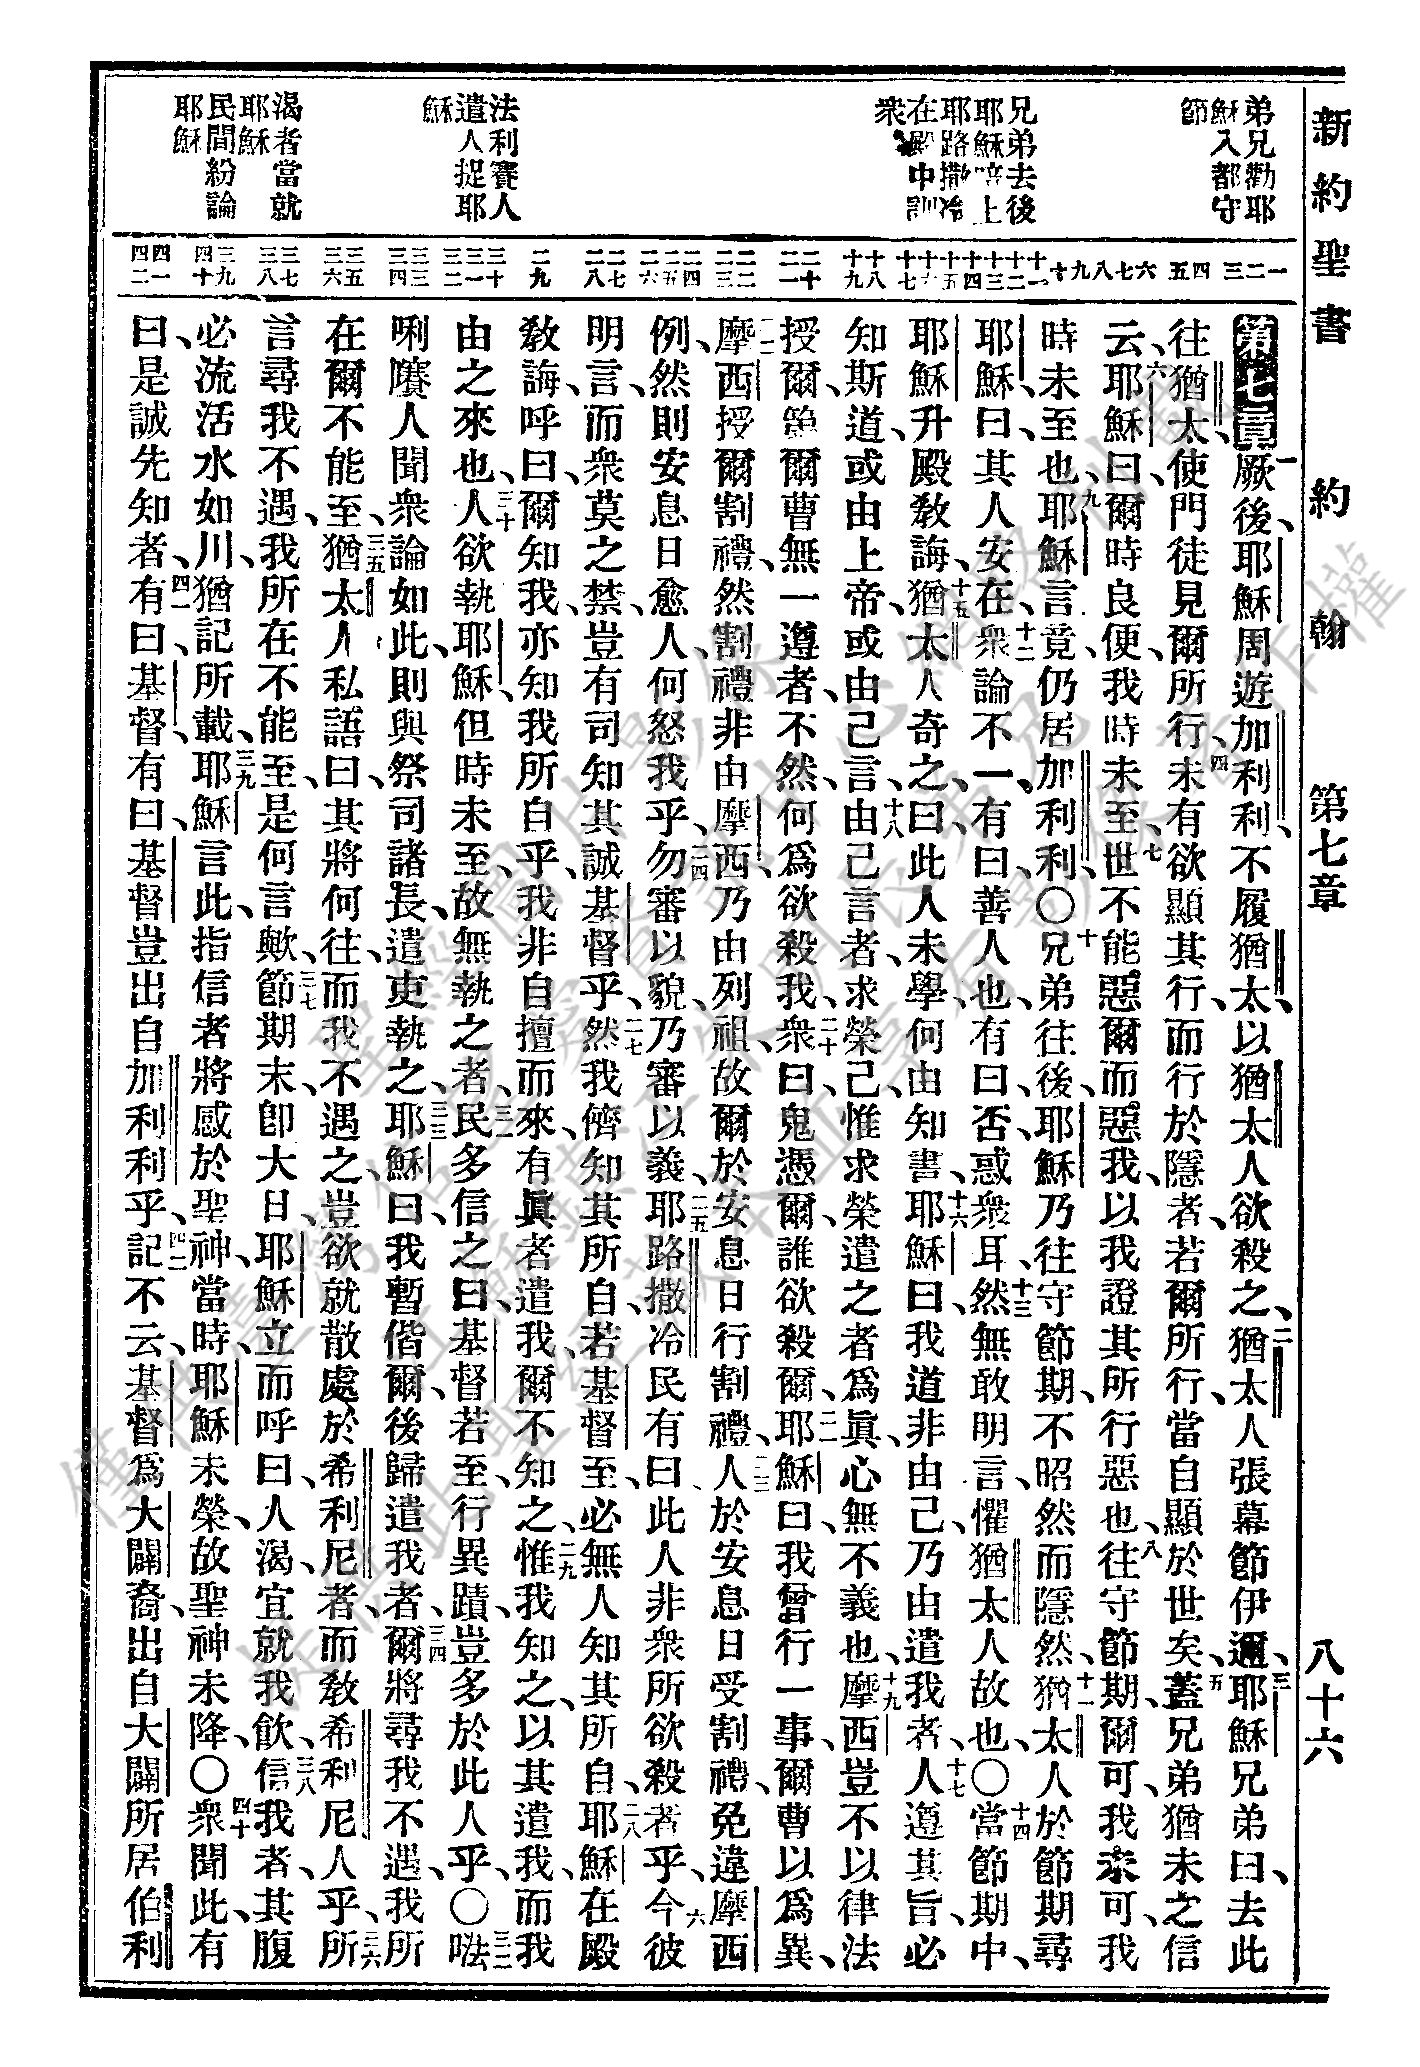 新約聖書 約翰 第七章 八十六
弟兄勸耶
穌入都守
節
兄弟去後
耶穌暗上
耶路撒冷
在殿中訓
衆
法利賽人
遣人捉耶
穌
渴者當就
耶穌
民間紛論
耶穌
一二三
四五
六七八九十
十一十二十三十四十五十六十七
十八十九
二十二一
二二二三
二四二五二六
二七二八
二九
三十三一三二
三三三四
三五三六
三七三八
三九四十
四一四二
第七章一厥後、耶穌周遊加利利、不履猶太、以猶太人欲殺之、二猶太人張幕節伊邇、三耶穌兄弟曰、去此
往猶太、使門徒見爾所行、四未有欲顯其行、而行於隱者、若爾所行、當自顯於世矣、五蓋兄弟猶未之信
云、六耶穌曰、爾時良便、我時未至、七世不能惡爾而惡我、以我證其所行惡也、八往守節期、爾可、我未可、我
時未至也、九耶穌言竟、仍居加利利、〇十兄弟往後、耶穌乃往守節期、不昭然而隱然、十一猶太人於節期尋
耶穌曰、其人安在、十二衆論不一、有曰善人也、有曰、否、惑衆耳、十三然無敢明言、懼猶太人故也、〇十四當節期中、
耶穌升殿敎誨、十五猶太人奇之、曰、此人未學、何由知書、十六耶穌曰、我道非由己、乃由遣我者、十七人遵其旨、必
知斯道、或由上帝、或由己言、十八由己言者、求榮己、惟求榮遣之者爲眞、心無不義也、十九摩西豈不以律法
授爾、第爾曹無一遵者、不然、何爲欲殺我、二十衆曰、鬼憑爾、誰欲殺爾、二一耶穌曰、我曾行一事、爾曹以爲異、
二二摩西授爾割禮、然割禮非由摩西、乃由列祖、故爾於安息日行割禮、二三人於安息日受割禮、免違摩西
例、然則安息日愈人、何怒我乎、二四勿審以貌、乃審以義、二五耶路撒冷民有曰、此人非衆所欲殺者乎、二六今彼
明言、而衆莫之禁、豈有司知其誠基督乎、二七然我儕知其所自、若基督至、必無人知其所自、二八耶穌在殿
敎誨、呼曰、爾知我、亦知我所自乎、我非自擅而來、有眞者遣我、爾不知之、二九惟我知之、以其遣我、而我
由之來也、三十人欲執耶穌、但時未至、故無執之者、三一民多信之、曰、基督若至、行異蹟、豈多於此人乎、〇三二𠵽
唎㘔人聞衆論如此、則與祭司諸長、遣吏執之、三三耶穌曰、我暫偕爾、後歸遣我者、三四爾將尋我不遇、我所
在、爾不能至、三五猶太人私語曰、其將何往、而我不遇之、豈欲就散處於希利尼者、而敎希利尼人乎、三六所
言尋我不遇、我所在不能至、是何言歟、三七節期末、卽大日、耶穌立而呼曰、人渴、宜就我飮、三八信我者、其腹
必流活水如川、猶記所載、三九耶穌言此、指信者將感於聖神、當時、耶穌未榮、故聖神未降、〇四十衆聞此、有
曰、是誠先知者、四一有曰、基督、有曰、基督豈出自加利利乎、四二記不云、基督爲大闢裔、出自大闢所居伯利